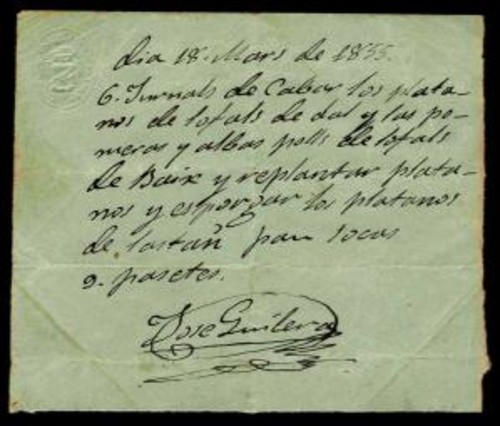 dia 18. Mars de 1855.
6. Jurnals de Cabar los plata-
nos de lofals de dal y las po-
meras y albas polls de lofals
de Baix y replantar plata-
nos y esporgar los platanos
de lastañ pau socas
9. pasetes.
Jose Guilera